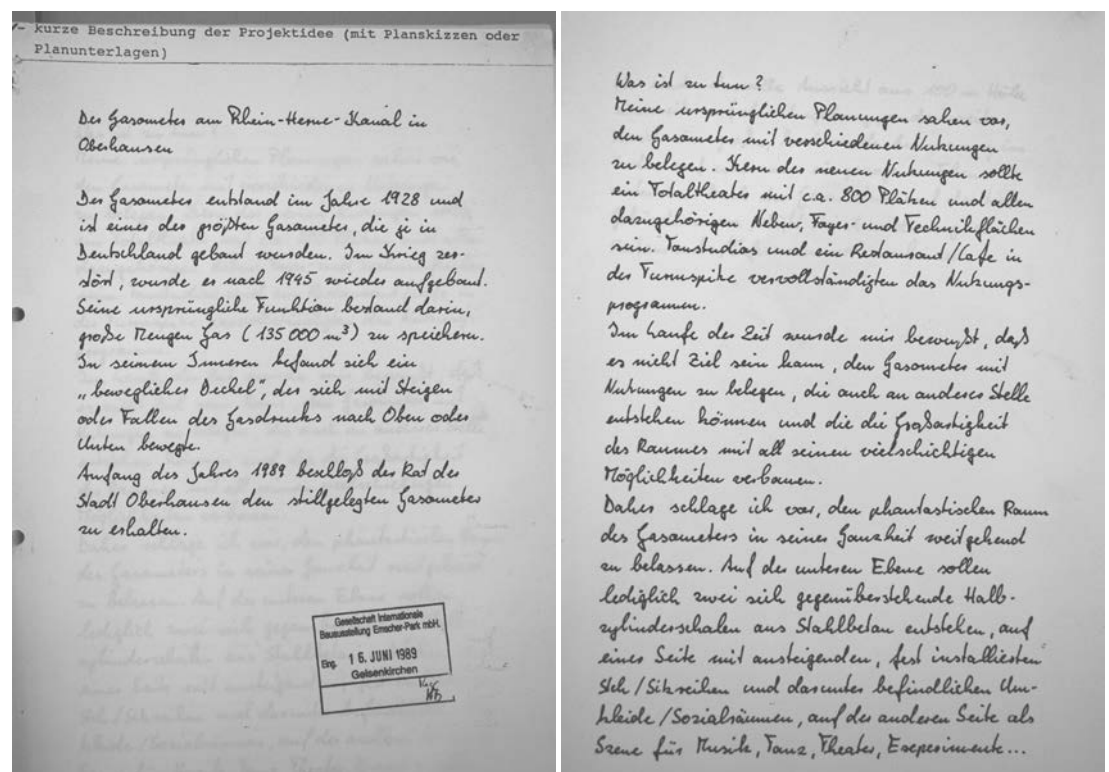 - kurze Beschreibung der Projektidee (mit Planskizzen oder
Planunterlagen)
Der Gasometer am Rhein-Herne-Kanal in
Oberhausen
Der Gasometer entstand im Jahre 1928 und
ist einer der größten Gasometer, die je in
Deutschland gebaut wurden. Im Krieg zer-
stört, wurde er nach 1945 wieder aufgebaut.
Seine ursprüngliche Funktion bestand darin,
große Mengen Gas (135 000 m³) zu speichern.
In seinem Inneren befand sich ein
„beweglicher Deckel", der sich mit Steigen
oder Fallen des Gasdrucks nach Oben oder
Unten bewegte.
Anfang des Jahres 1989 beschloß der Rat der
Stadt Oberhausen den stillgelegten Gasometer
zu erhalten.
Gesellschaft Internationale
Bauausstellung Emscher-Park mbH.
Eing. 16. JUNI 1989
Gelsenkirchen
Was ist zu tun?
Meine ursprünglichen Planungen sahen vor,
den Gasometer mit verschiedenen Nutzungen
zu belegen. Kern der neuen Nutzungen sollte
ein Totaltheater mit c.a. 800 Plätzen und allen
dazugehörigen Neben, Foyer- und Technikflächen
sein. Tonstudios und ein Restaurant/Cafe in
der Turmspitze vervollständigten das Nutzungs-
programm.
Im Laufe der Zeit wurde mir bewußt, daß
es nicht Ziel sein kann, den Gasometer mit
Nutzungen zu belegen, die auch an anderer Stelle
entstehen können und die die Großartigkeit
des Raumes mit all seinen vielschichtigen
Möglichkeiten verbauen.
Daher schlage ich vor, den phantastischen Raum
des Gasometers in seiner Ganzheit weitgehend
zu belassen. Auf der unteren Ebene sollen
lediglich zwei sich gegenüberstehende Halb-
zylinderschalen aus Stahlbeton entstehen, auf
einer Seite mit ansteigenden, fest installierten
Steh/Sitzreihen und darunter befindlichen Um-
kleide/Sozialräumen, auf der anderen Seite als
Szene für Musik, Tanz, Theater, Experimente...